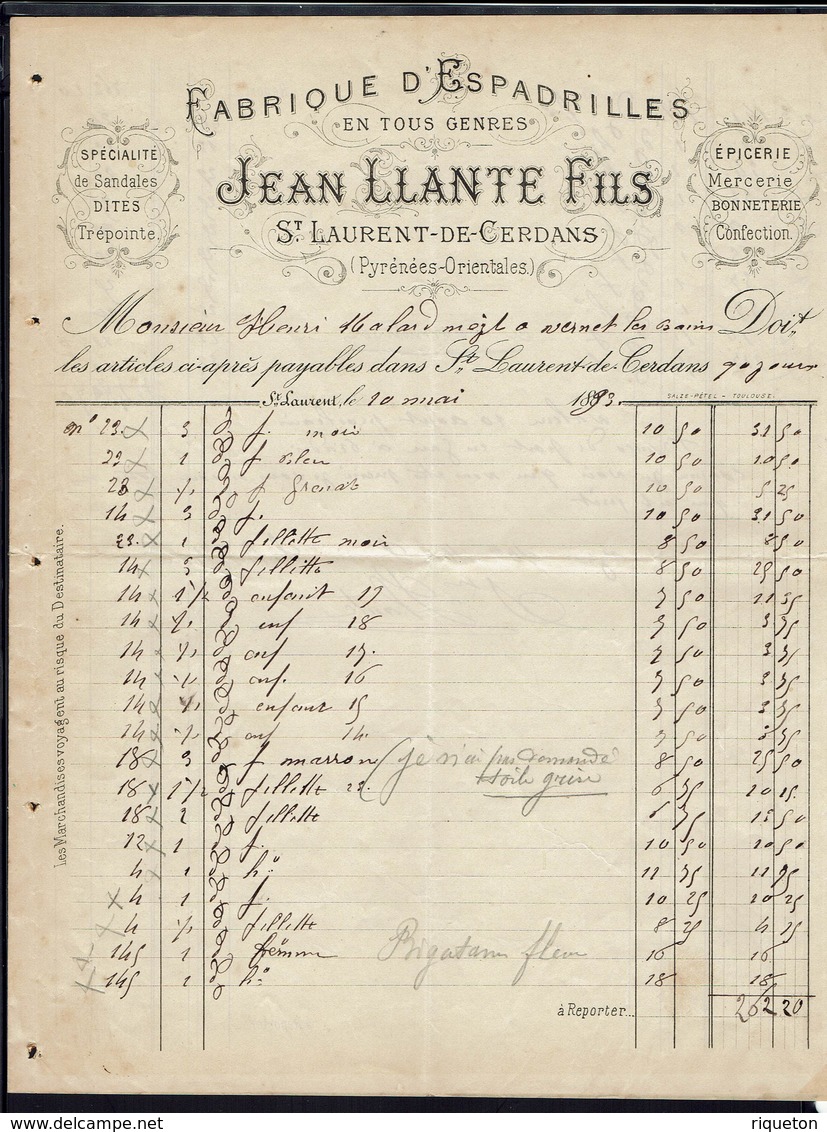 FABRIQUE D'ESPADRILLES
EN TOUS GENRES
JEAN LLANTE FILS
ST LAURENT-DE-CERDANS
(Pyrénées-Orientales.)
SPÉCIALITÉ
de Sandales
DITES
Trépointe.
ÉPICERIE
Mercerie
BONNETERIE
Confection.
Monsieur Henri Malard négt a vernet les Bains Doit
les articles ci-après payables dans St Laurent-de-Cerdans 90 jours
St Laurent, le 20 mai 1893.
SALZE-PÉTEL - TOULOUSE.
Les Marchandises voyagent au risque du Destinataire.
n° 23 3 f. noir 10 50 31 50
22 1 f Bleu 10 50 10 50
28 ½ f Grenat 10 50 5 25
14 3 f. 10 50 31 50
23. 1 fillette noir 8 50 8 50
14 3 fillette 8 50 25 50
14 1 ½ enfant 19 7 50 11 25
14 ½ enf 18 7 50 3 75
14 ½ enf 17. 7 50 3 75
14 ½ enf. 16 7 50 3 75
14 ½ enfant 15 7 50 3 75
14 ½ enf 14. 7 50 3 75
18 3 f marron 8 50 25 50
(je n'ai pas demandé
toile grise
18 1 ½ fillette 22. 6 75 10 15
18 2 fillette 6 75 13 50
12 1 f. 10 50 10 50
4 1 h° 11 75 11 75
4 1 f. 10 25 10 25
4 ½ fillette 8 25 4 25
145 1 femme 16 16
145 1 h° 18 18
à Reporter... 262 20
riqueton
www.delcampe.net